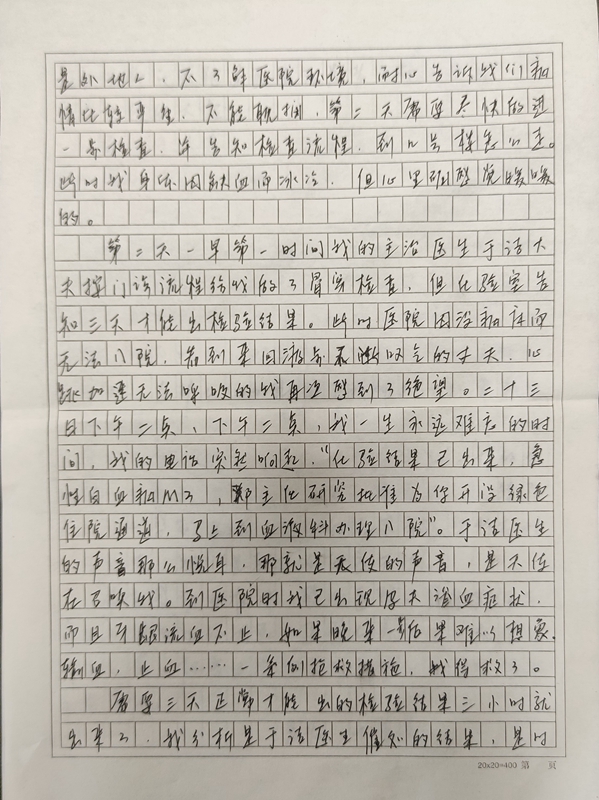 是外地人，不了解医院环境，耐心告诉我们病
情比较严重，不能耽搁，第二天需要尽快的进
一步检查，并告知检查流程，到几号楼怎么走。
此时我身体因缺血而冰冷，但心里却感觉暖暖
的。
第二天一早第一时间我的主治医生于洁大
夫按门诊流程给我做了骨穿检查，但化验室告
知三天才能出检验结果。此时医院因没病床而
无法入院，看到来回游步不断叹气的丈夫，心
跳加速无法呼吸的我再次感到了绝望。二十三
日下午二点，下午二点，我一生永远难忘的时
间，我的电话突然响起，“化验结果已出来，急
性白血病M3，主任研究批准为你开设绿色
住院通道，马上到血液科办理入院”。于洁医生
的声音那么悦耳，那就是天使的声音，是天使
在召唤我。到医院时我已出现牙大渗血症状，
而且牙龈流血不止，如果晚来一步后果难以想象。
输血，止血……一系例抢救措施，我得救了。
需要三天正常才能出的检验结果三小时就
出来了，我分析是于洁医生催知的结果，是时
20×20=400 第 页